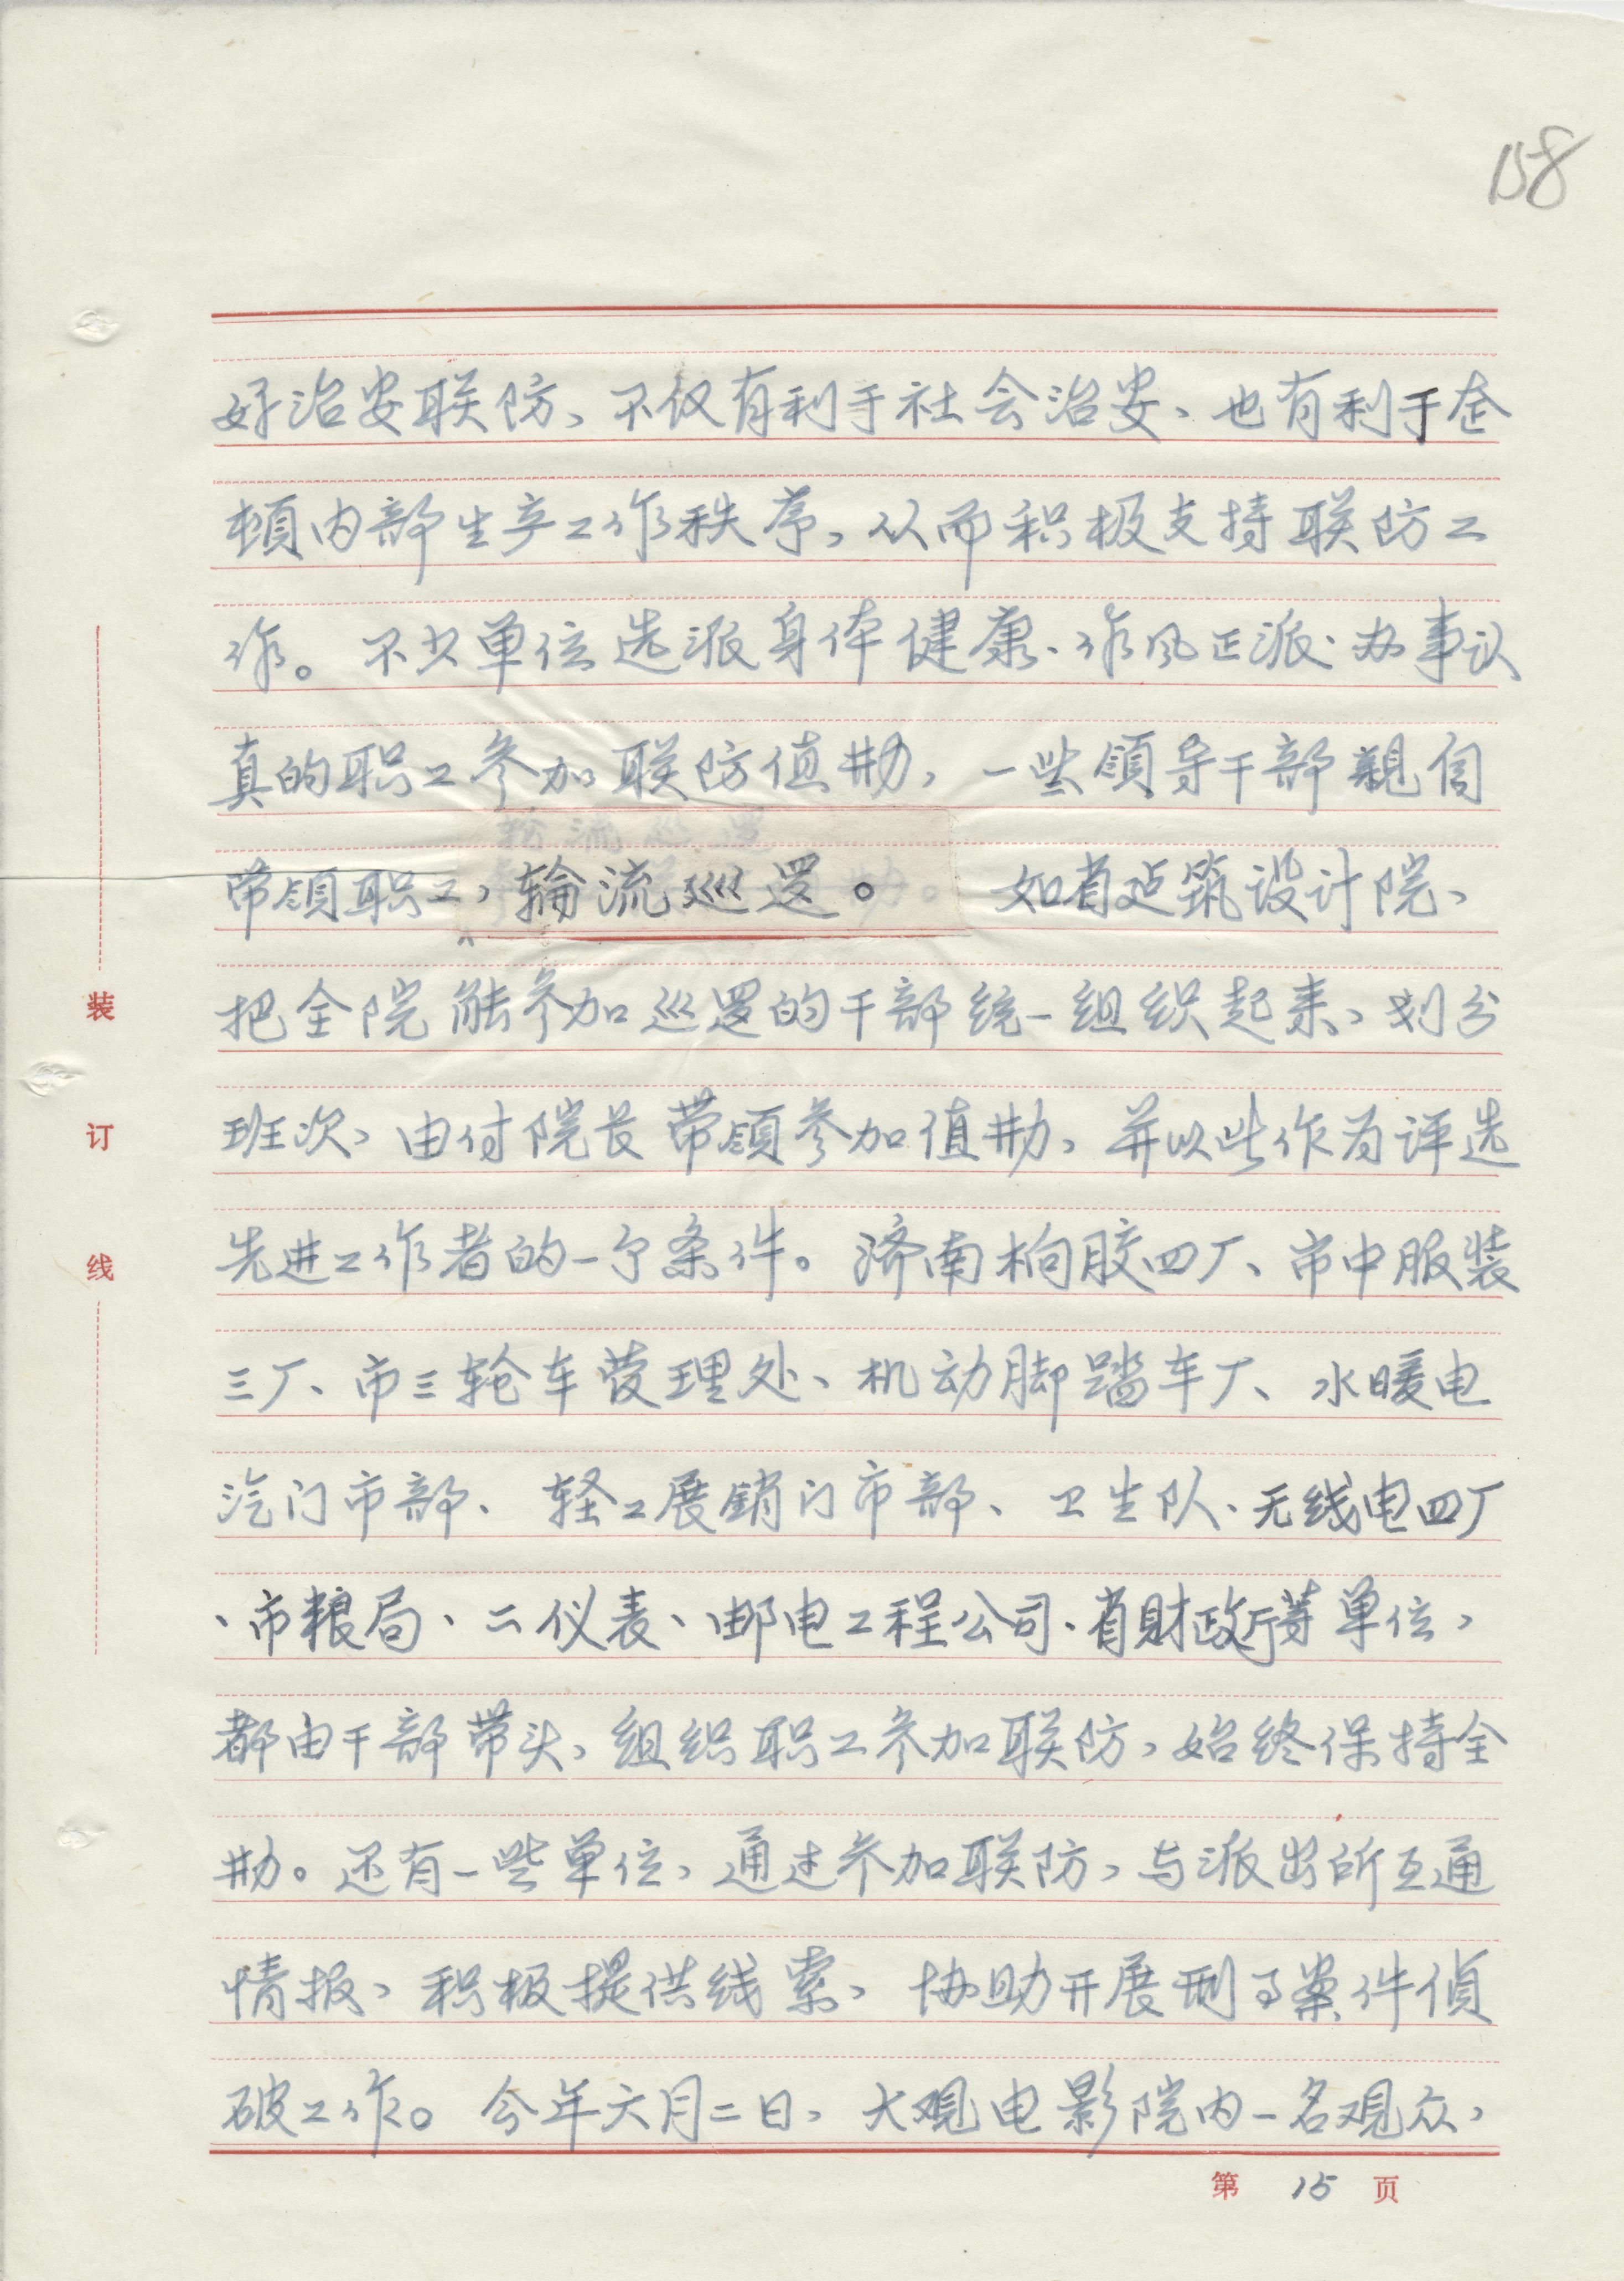 158
好治安联防,不仅有利于社会治安、也有利于整
顿内部生产工作秩序,从而积极支持联防工
作。不少单位选派身体健康、作风正派、办事认
真的职工参加联防值勤,一些领导干部亲自
带领职工,轮流巡逻。如省建筑设计院、
把全院能参加巡逻的干部统一组织起来,划分
班次,由付院长带领参加值勤,并以此作为评选
先进工作者的一个条件。济南橡胶四厂、市中服装
三厂、市三轮车营理处、机动脚踏车厂、水暖电
汽门市部、轻工展销门市部、卫生队、无线电四厂
、市粮局、二仪表、邮电工程公司、省财政厅等单位,
都由干部带头,组织职工参加联防,始终保持全
勤。还有一些单位,通过参加联防,与派出所互通
情报,积极提供线索,协助开展刑事案件侦
破工作。今年六月二日,大观电影院内一名观众,
装
订
线
第 15 页